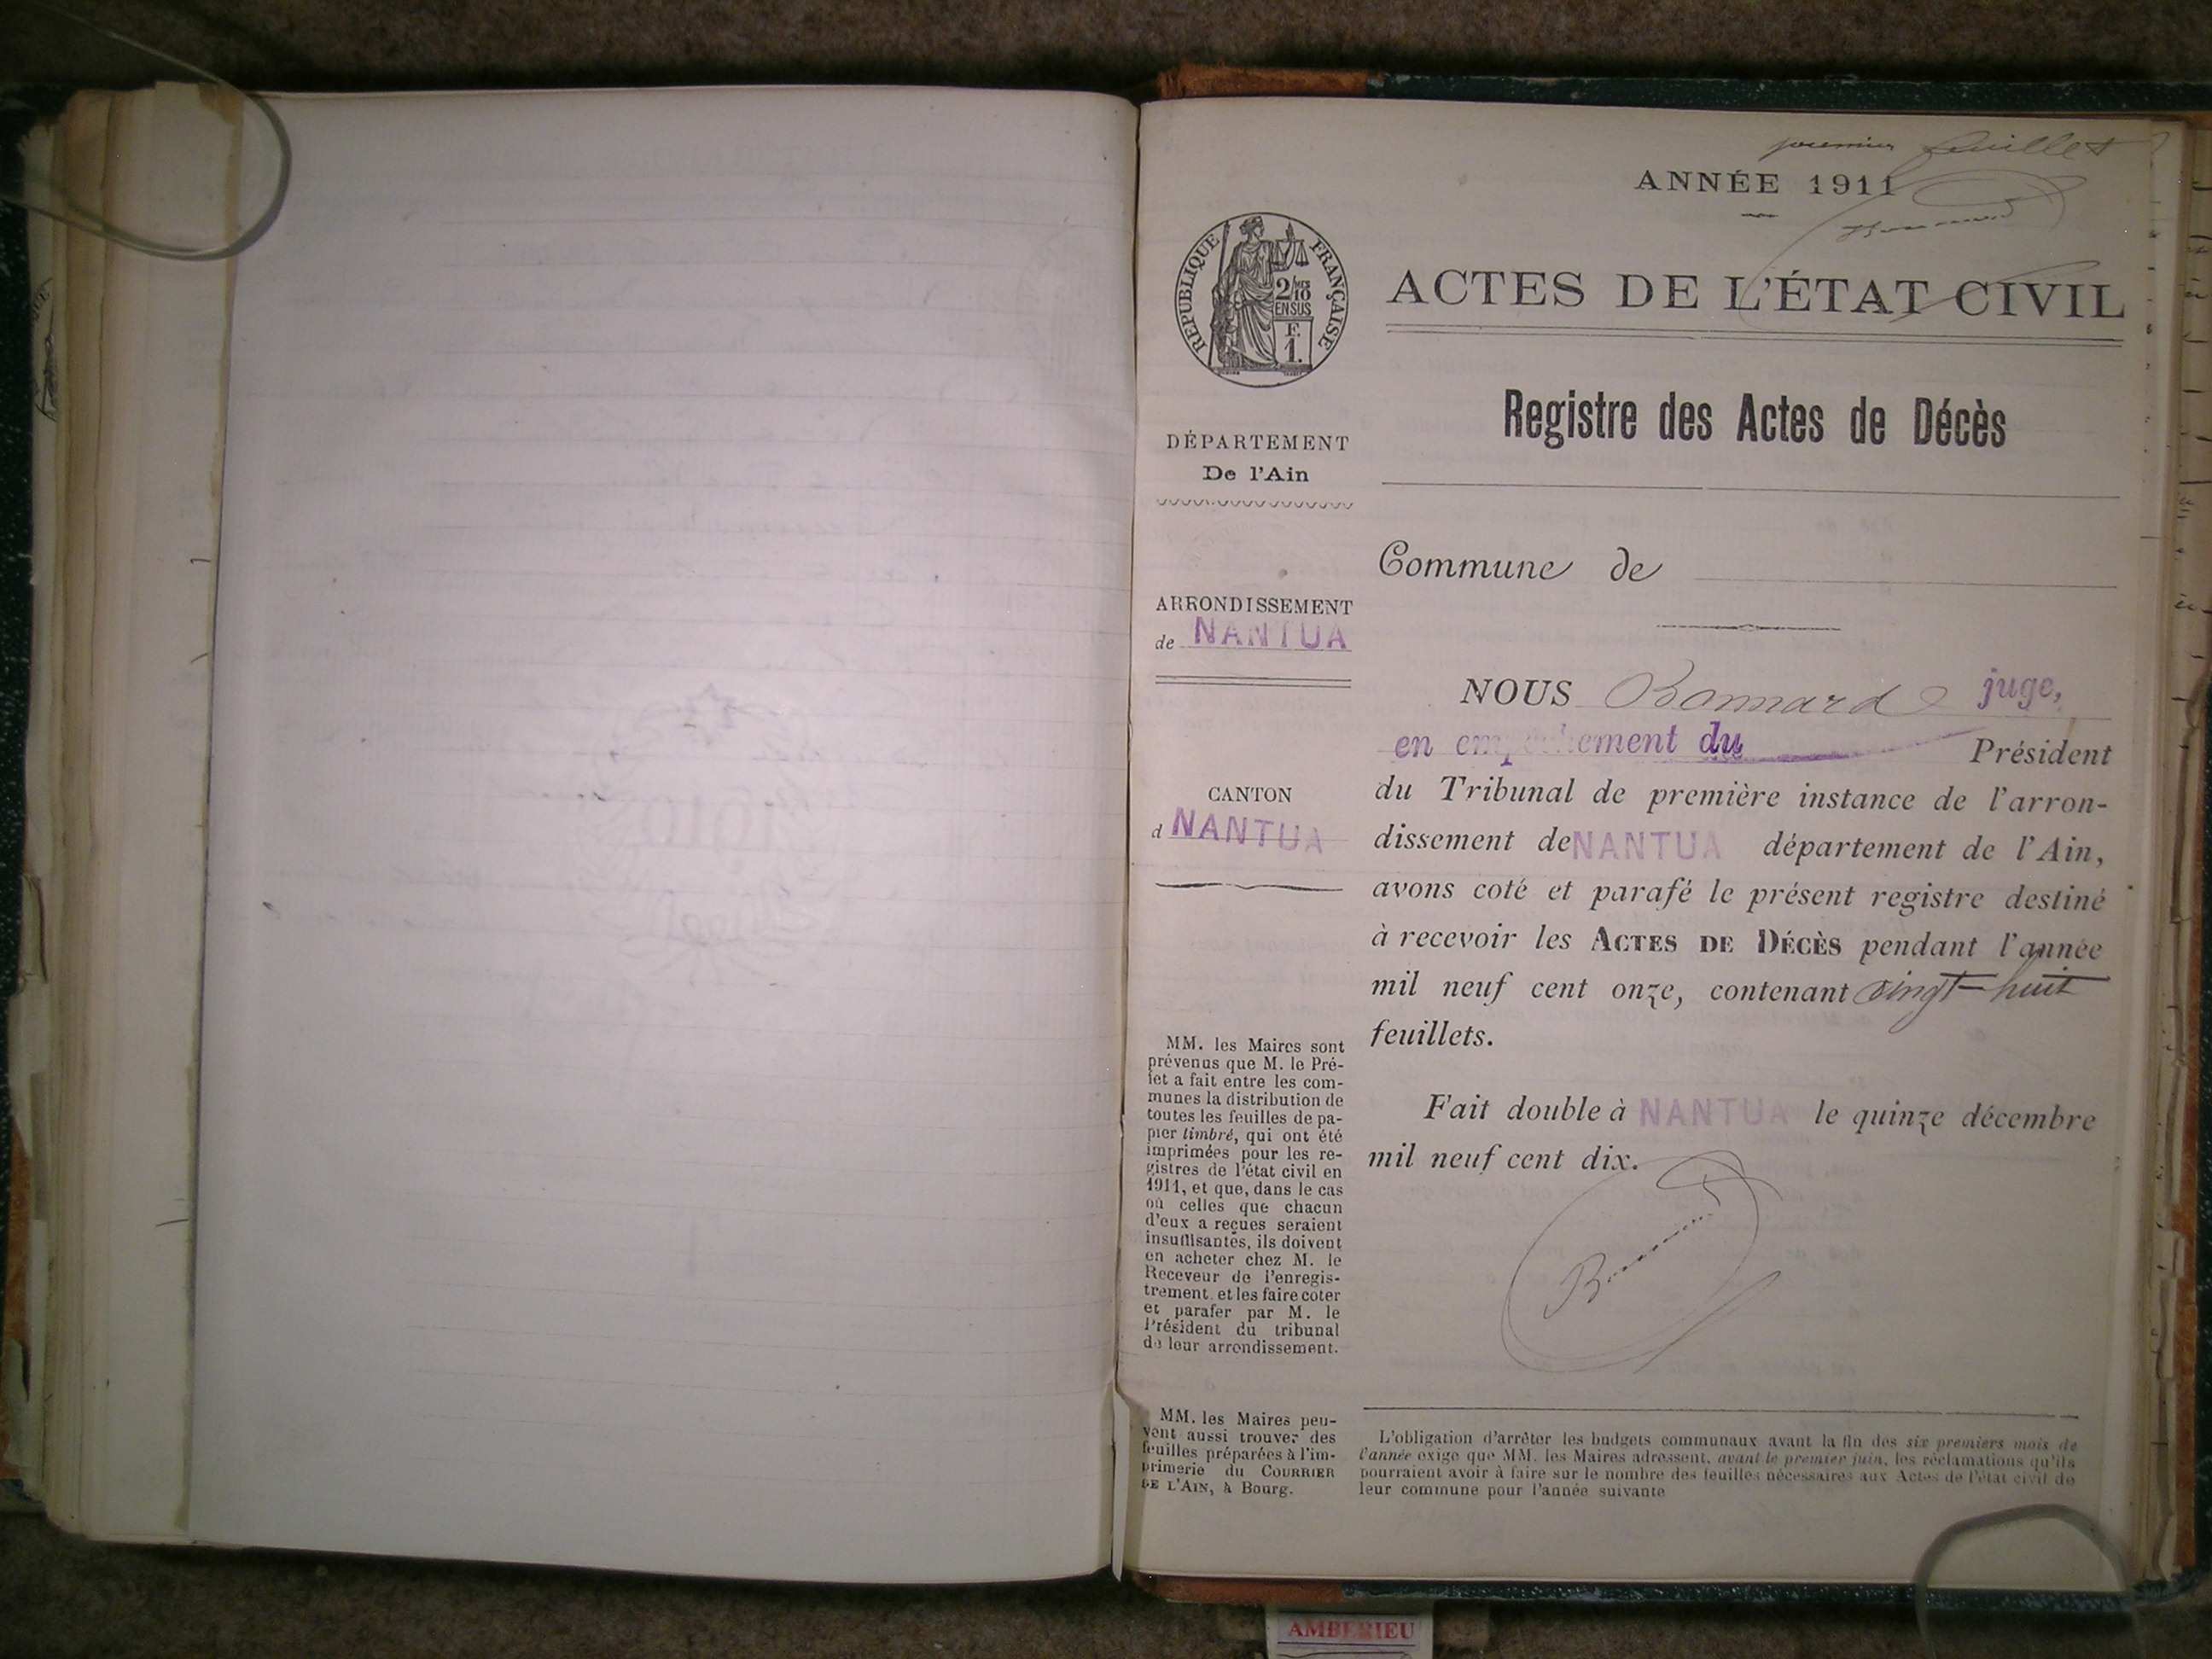 premier feuillet
ANNÉE 1911
RÉPUBLIQUE FRANÇAISE
2/10
EN SUS
F.
1.
ACTES DE L'ÉTAT CIVIL
Registre des Actes de Décès
DÉPARTEMENT
De l'Ain
ARRONDISSEMENT
de NANTUA
CANTON
d NANTUA
MM. les Maires sont
prévenus que M. le Pré-
fet a fait entre les com-
munes la distribution de
toutes les feuilles de pa-
pier timbré, qui ont été
imprimées pour les re-
gistres de l'état civil en
1911, et que, dans le cas
où celles que chacun
d'eux a reçues seraient
insuffisantes, ils doivent
en acheter chez M. le
Receveur de l'enregis-
trement. et les faire coter
et parafer par M. le
Président du tribunal
de leur arrondissement.
MM. les Maires peu-
vent aussi trouver des
feuilles préparées à l'im-
primerie du COURRIER
DE L'AIN, à Bourg.
Commune de
NOUS Bonnard juge,
en empêchement du Président
du Tribunal de première instance de l'arron-
dissement de NANTUA département de l'Ain,
avons coté et parafé le présent registre destiné
à recevoir les ACTES DE DÉCÈS pendant l'année
mil neuf cent onze, contenant vingt-huit
feuillets.
Fait double à NANTUA le quinze décembre
mil neuf cent dix.
L'obligation d'arrêter les budgets communaux avant la fin des six premiers mois de
l'année exige que MM. les Maires adressent, avant le premier juin, les réclamations qu'ils
pourraient avoir à faire sur le nombre des feuilles nécessaires aux Actes de l'état civil de
leur commune pour l'année suivante
AMBERIEU